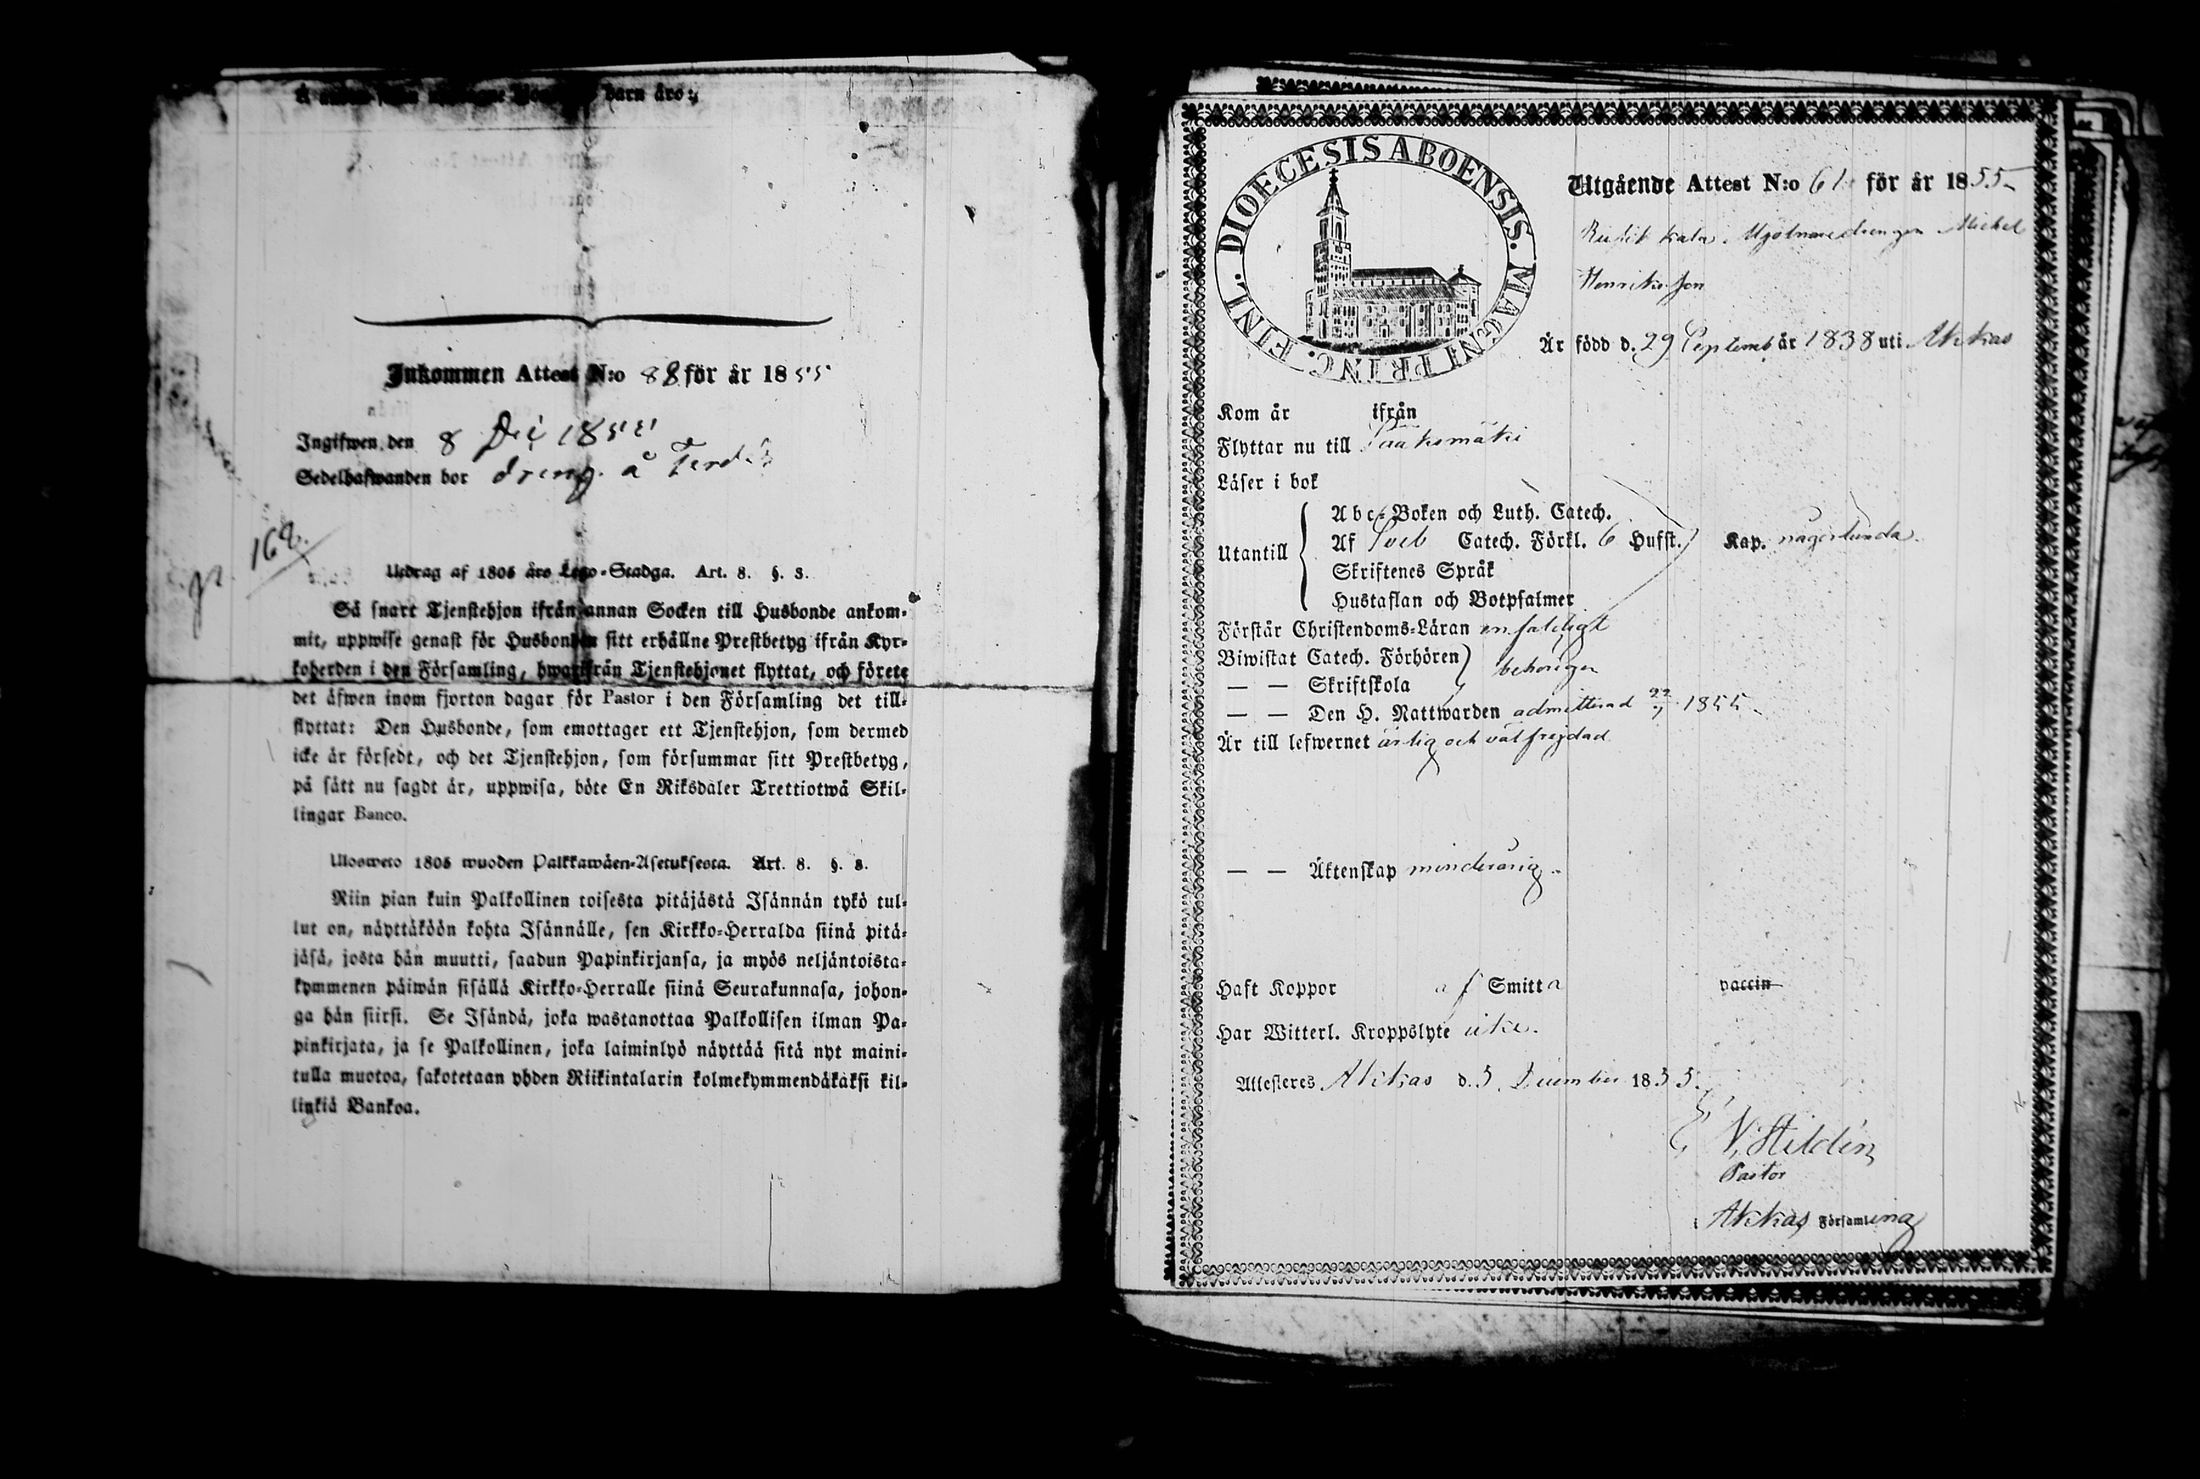 barn äro:
Inkommen Attest N:o 88 för år 1855
Ingifwen den 8 Dec 1855
Sedelhafwanden bor dreng å
p. 168.
Utdrag af 1805 års Lego-Stadga. Art. 8. §. 3.
Så snart Tjenstehjon ifrån annan Socken till Husbonde ankom-
mit, uppwise genast för Husbonden sitt erhållne Prestbetyg ifrån Kyr-
koherden i den Församling, hwarifrån Tjenstehjonet flyttat, och förete
det äfwen inom fjorton dagar för Pastor i den Församling det till-
flyttat: Den Husbonde, som emottager ett Tjenstehjon, som dermed
icke är försedt, och det Tjenstehjon, som försummar sitt Prestbetyg,
på sätt nu sagdt är, uppwisa, böte En Riksdaler Trettiotwå Skil-
lingar Banco.
Ulosweto 1805 wuoden Palkkawäen-Asetuksesta. Art. 8. §. 3.
Niin pian kuin Palkollinen toisesta pitäjästä Isännän tykö tul-
lut on, näyttäköön kohta Isännälle, sen Kirkko-Herralda siinä pitä-
jäsä, josta hän muutti, saadun Papinkirjansa, ja myös neljäntoista-
kymmenen päiwän sisällä Kirkko-Herralle siinä Seurakunnasa, johon-
ga hän siirsi. Se Isändä, joka wastanottaa Palkollisen ilman Pa-
pinkirjata, ja se Palkollinen, joka laiminlyö näyttää sitä nyt maini-
tulla muotoa, sakotetaan yhden Riikintalarin kolmekymmendäkaksi kil-
linkiä Bankoa.
DIOECESIS ABOENSIS. MAGNI PRINC. FINL.
Utgående Attest N:o 61 för år 1855
kala Mjölnaredrengen Michel
Henriksson
Är född d. 29 Septemb år 1838 uti Akkas
Kom år ifrån
Flyttar nu till Sääksmäki
Läser i bok
Utantill
Abc-Boken och Luth. Catech.
Af Sveb Catech. Förkl. 6 Hufst. Kap. någorlunda
Skriftenes Språk
Hustaflan och Botpsalmer
Förstår Christendoms-Läran enfaldigt
Biwistat Catech. Förhören behörigen
— — Skriftskola
— — Den H. Nattwarden admitterad 22/7 1855
Är till lefwernet ärlig och välfrejdad
— — Äktenskap minderårig
Haft Koppor af Smitta vaccin
Har Witterl. Kroppslyte icke.
Attesteres Akkas d. 5 December 1855.
Hildén
Pastor
i Akkas Församling